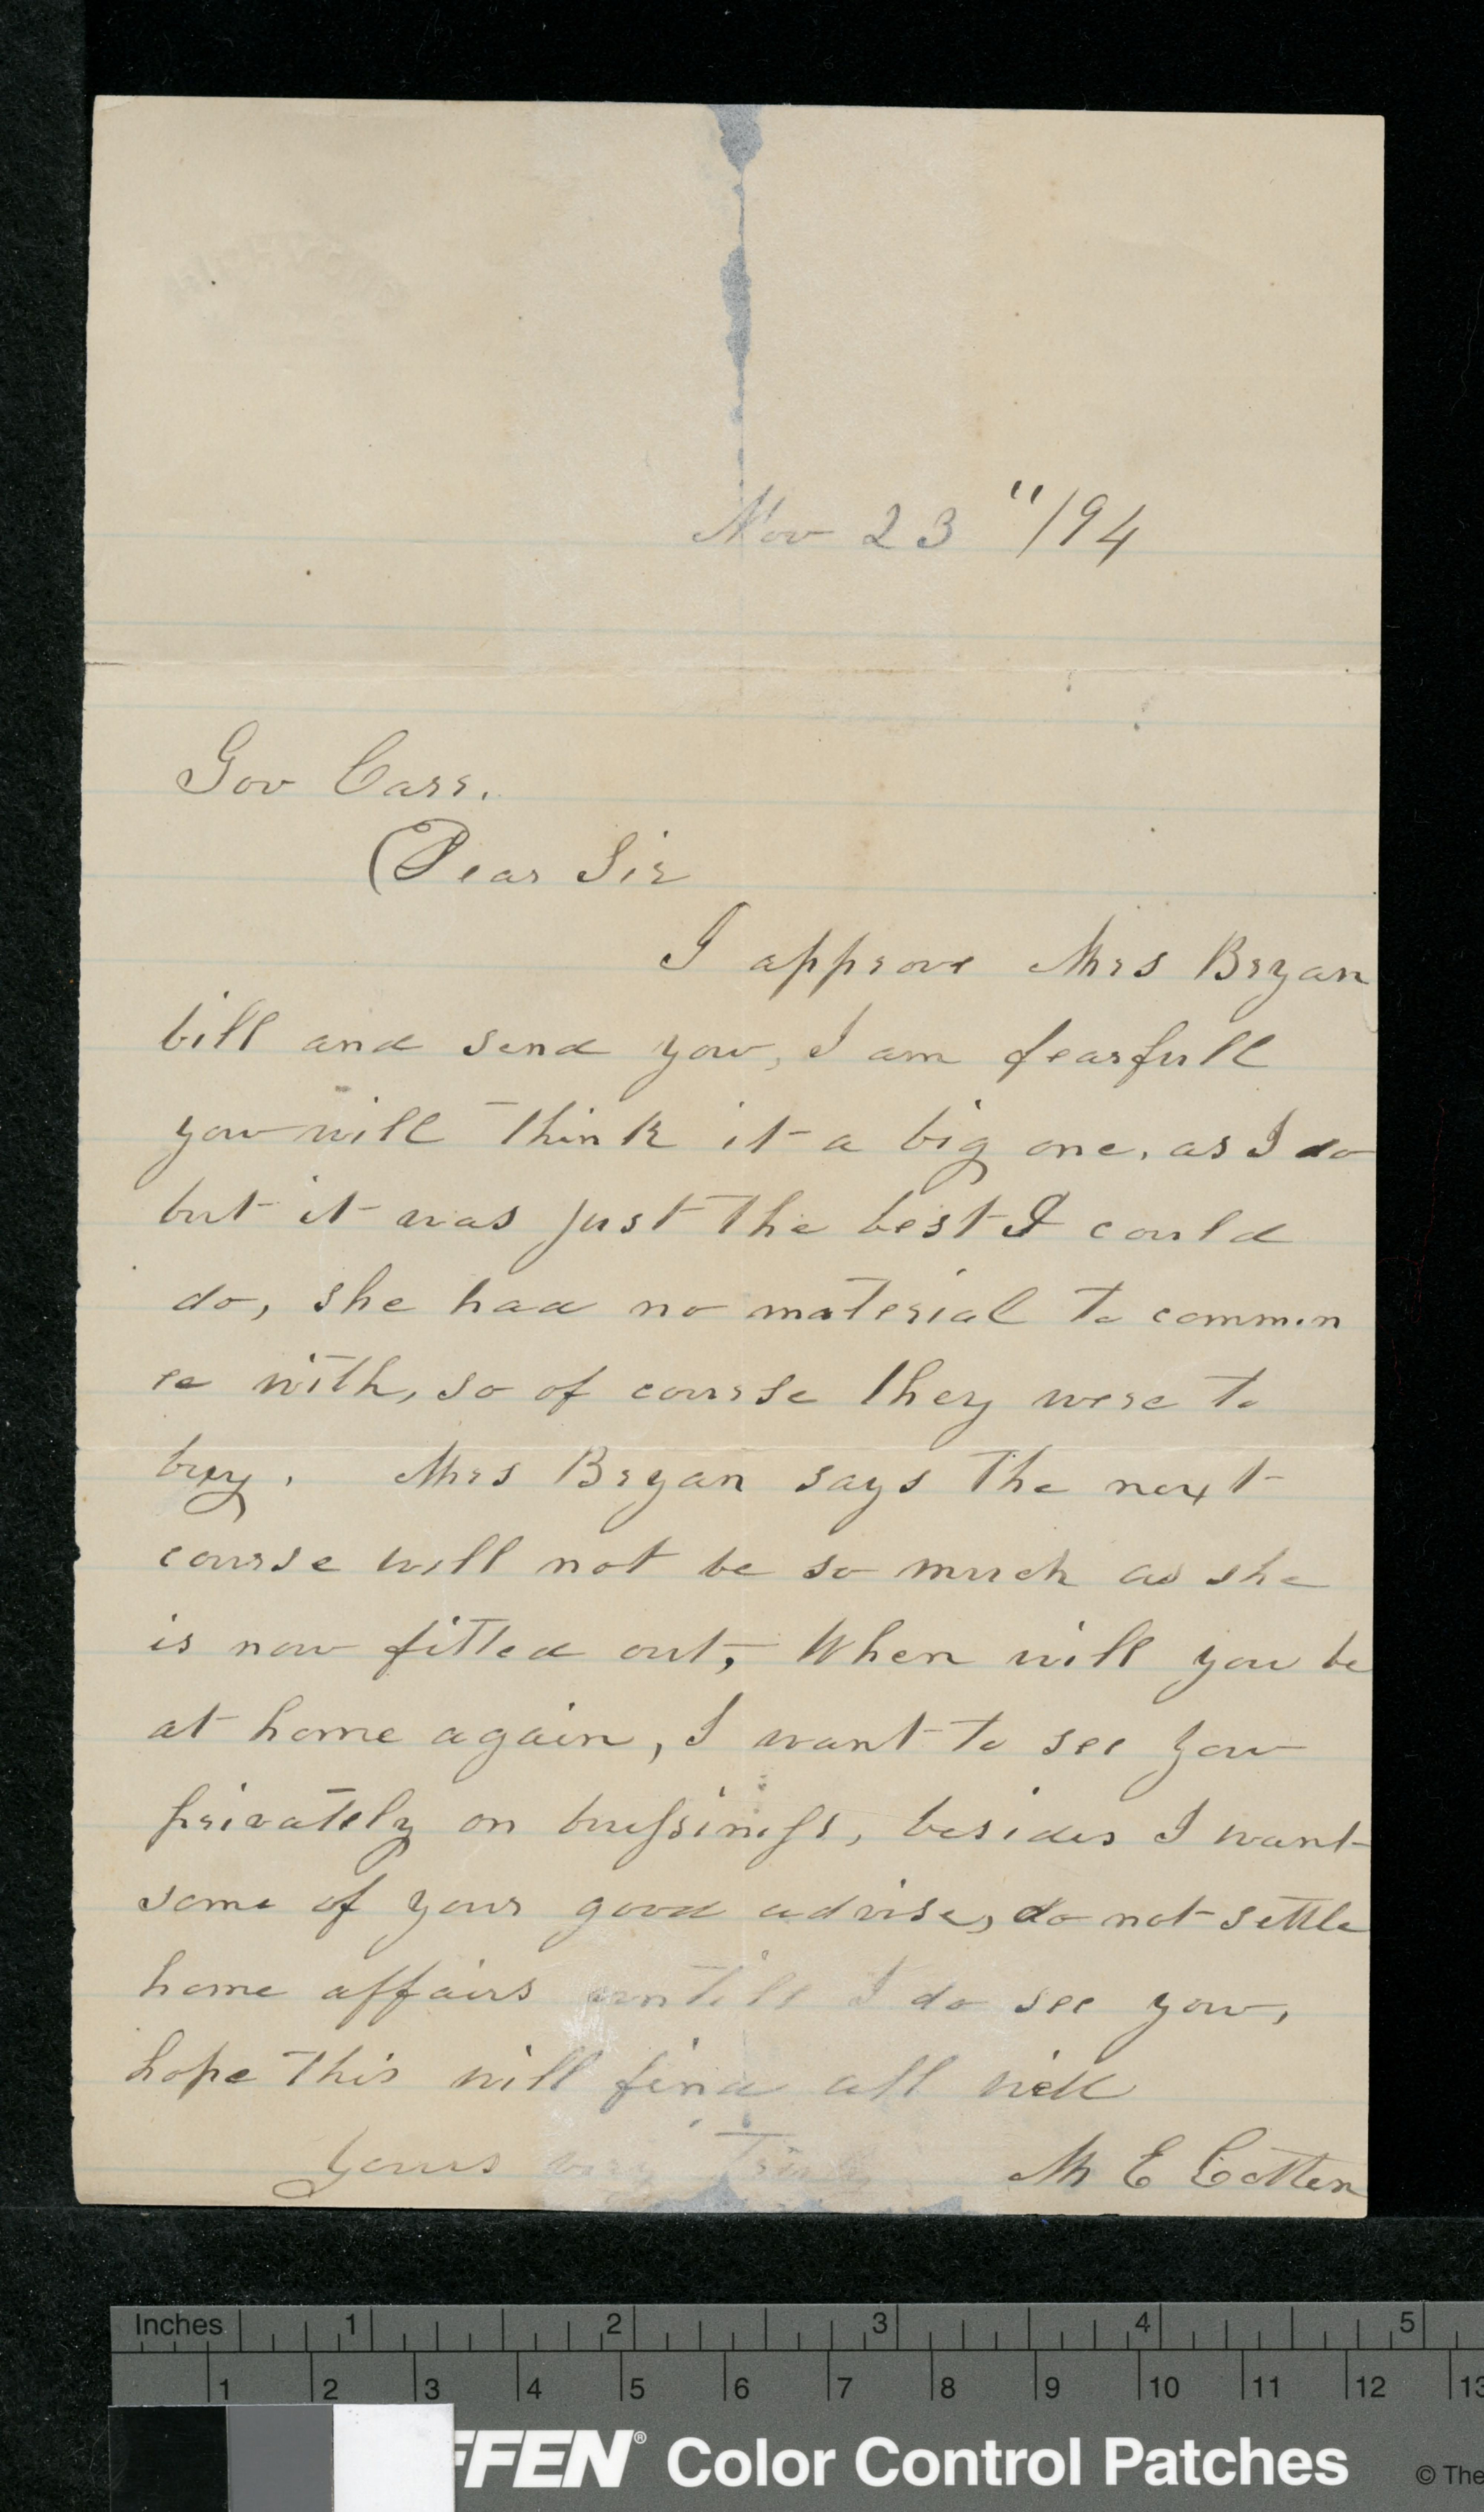 Nov 23 "/94
Gov Carr.
Dear Sir
I approve Mrs Bryan
bill and send you, I am fearfull
you will think it a big one, as I do
but it was just the best I could
do, she had no material to commen
ce with, so of course they were to
buy. Mrs Bryan says the next
course will not be so much as she
is now fitted out, When will you be
at home again, I want to see you
privately on bussiness, besides I want
some of your good advise, do not settle
home affairs untill I do see you,
hope this will find all well
Yours very Truly M E Cotten
Inches 1 2 3 4 5
1 2 3 4 5 6 7 8 9 10 11 12 13
FFEN® Color Control Patches © The